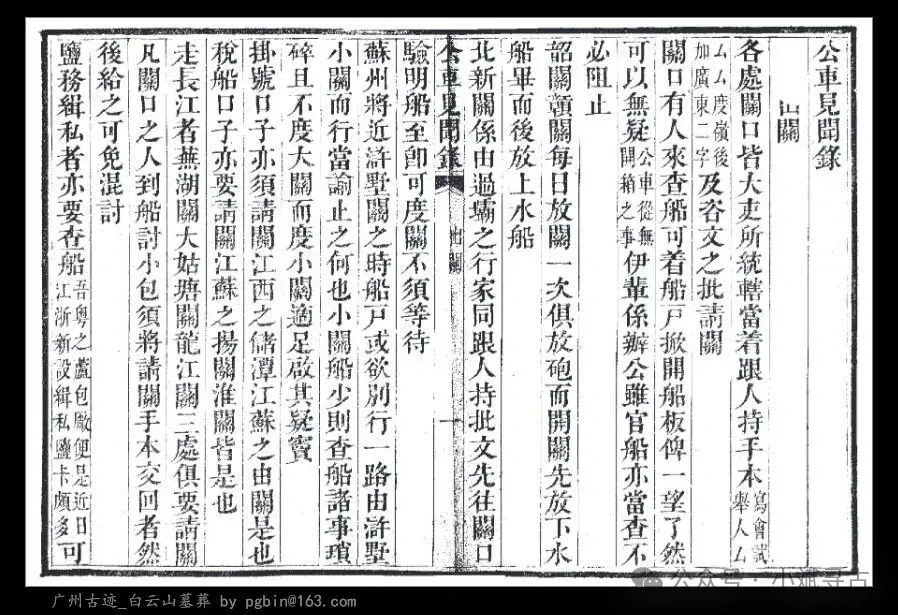 公車見聞錄
出關
各處關口皆大吏所統轄當着跟人持手本寫會試舉人厶
厶厶度嶺後加廣東二字及咨文之批請關
關口有人來查船可着船戶掀開船板俾一望了然
可以無疑公車從無開箱之事伊輩係辦公雖官船亦當查不
必阻止
韶關贛關每日放關一次俱放砲而開關先放下水
船畢而後放上水船
北新關係由過壩之行家同跟人持批文先往關口
公車見聞錄 出關 一
驗明船至卽可度關不須等待
蘇州將近滸墅關之時船戶或欲別行一路由滸墅
小關而行當諭止之何也小關船少則查船諸事瑣
碎且不度大關而度小關適足啟其疑竇
掛號口子亦須請關江西之儲潭江蘇之由關是也
稅船口子亦要請關江蘇之揚關淮關皆是也
走長江者蕪湖關大姑塘關龍江關三處俱要請關
凡關口之人到船討小包須將請關手本交回者然
後給之可免混討
鹽務緝私者亦要查船吾粵之蘆包廠便是近日江浙新設緝私鹽卡頗多可
广州古迹_白云山墓葬 by pgbin@163.com
公众号·小虣寻古